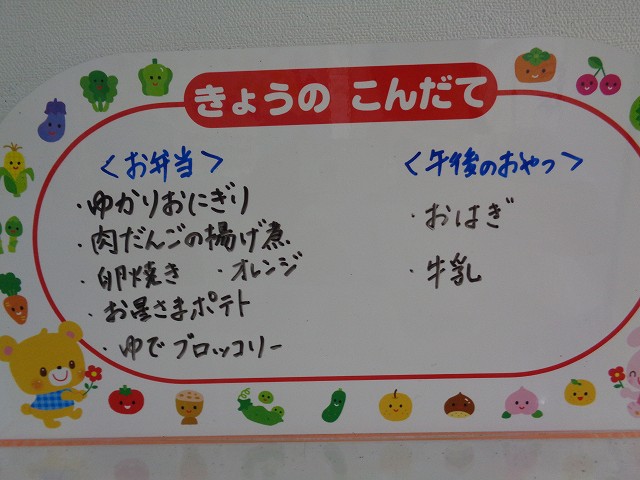 きょうの こんだて
<お弁当>
・ゆかりおにぎり
・肉だんごの揚げ煮
・卵焼き ・オレンジ
・お星さまポテト
・ゆでブロッコリー
<午後のおやつ>
・おはぎ
・牛乳